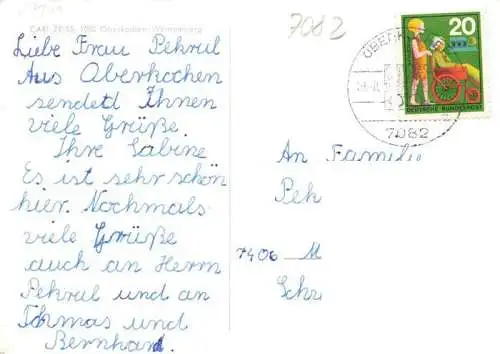 7082
CARL ZEISS, 7082 Oberkochen/Württemberg
Liebe Frau Pehrul
Aus Oberkochen
sendet Ihnen
viele Grüße.
Ihre Sabine
Es ist sehr schön
hier. Nochmals
viele Grüße
auch an Herrn
Pehrul und an
Thomas und
Bernhard.
20
DEUTSCHE BUNDESPOST
7082
An Famili
Peh
7406 M
Schr